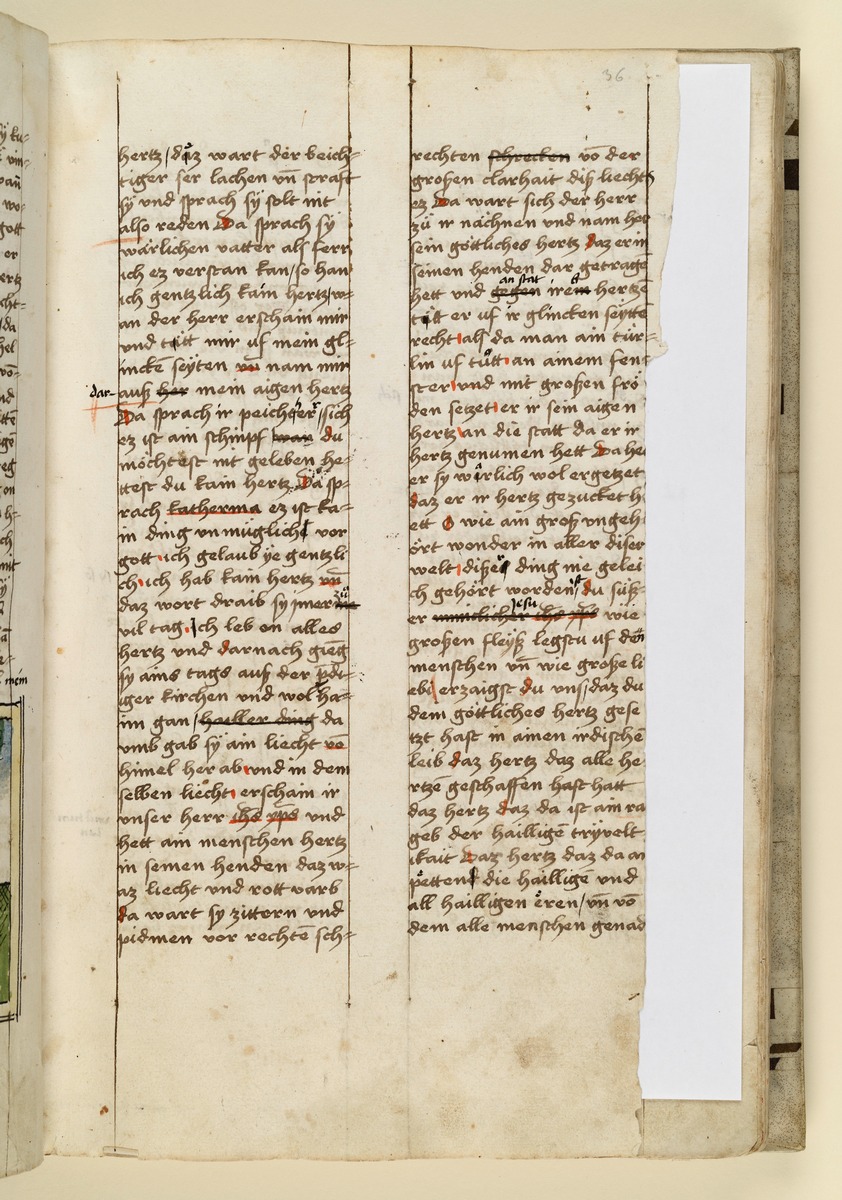 36
hertz / daz wart der beich=
tiger ser lachen vn̄ straft
sÿ vnd sprach sÿ solt nit
also reden Da sprach sÿ
wärlichen vatter als ferr
ich ez verstan kan / so han
ich gentzlich kain hertz / w=
an der herr erschain mir
vnd tätt mir uf mein gl=
incke͂ seÿten vn̄ nam mir
dar= auß her mein aigen hertz
Da sprach ir peichter / sich
ez ist ain schinpf wan du
möchtest nit geleben he=
ttest du kain hertz Da sp=
rach katherina ez ist ka=
in ding vnmüglich vor
gott ich gelaub ÿe gentzli
ch ich hab kain hertz vn̄
daz wort draib sÿ jmer
vil tag Ich leb on alles
hertz vnd darnach gieng
sÿ ains tags auß der p̄di=
iger kirchen vnd wolt ha=
im gan / haeller ding da
vmb gab sÿ ain liecht vō
himel her ab vnd in dem
selben liecht erschain ir
vnser herr ihs xp̄s vnd
hett ain menschen hertz
in seinen henden daz w=
az liecht vnd rott varb
da wart sÿ zittern vnd
pidmen vor rechtē sch=
rechten schrecken vō der
großen clarhait diß liecht
ez Da wart sich der herr
zü ir nächnen vnd nam her
sein göttliches hertz daz er in
seinen henden dar getrage
hett vnd gegen an statt irem hertzē
tätt er uf ir glincken seÿtte
recht als da man ain tür=
lin uf tütt an ainem fen
ster vnd mit großen frö
den setzet er ir sein aigen
hertz an die statt da er ir
hertz genumen hett Da he
er sÿ wärlich wol ergetzet
daz er ir hertz gezucket h
ett O wie ain groß vngeh
ört wonder in aller diser
welt dißer ding nie gelei
ch gehört worden du süß=
er minnicher ihs xp̄s jesu wie
großen fleÿß legstu uf den
menschen vn̄ wie große li
ebi erzaigst du vns / daz du
dem göttliches hertz gese
tzt hast in ainen irdischē
leib daz hertz daz alle he
rtzē geschaffen hast hatt
daz hertz daz da ist ain ra
geb der hailligē trÿvelt
ikait Daz hertz daz da an
pettent die hailligē vnd
all hailligen eren / vn̄ vō
dem alle menschen genad